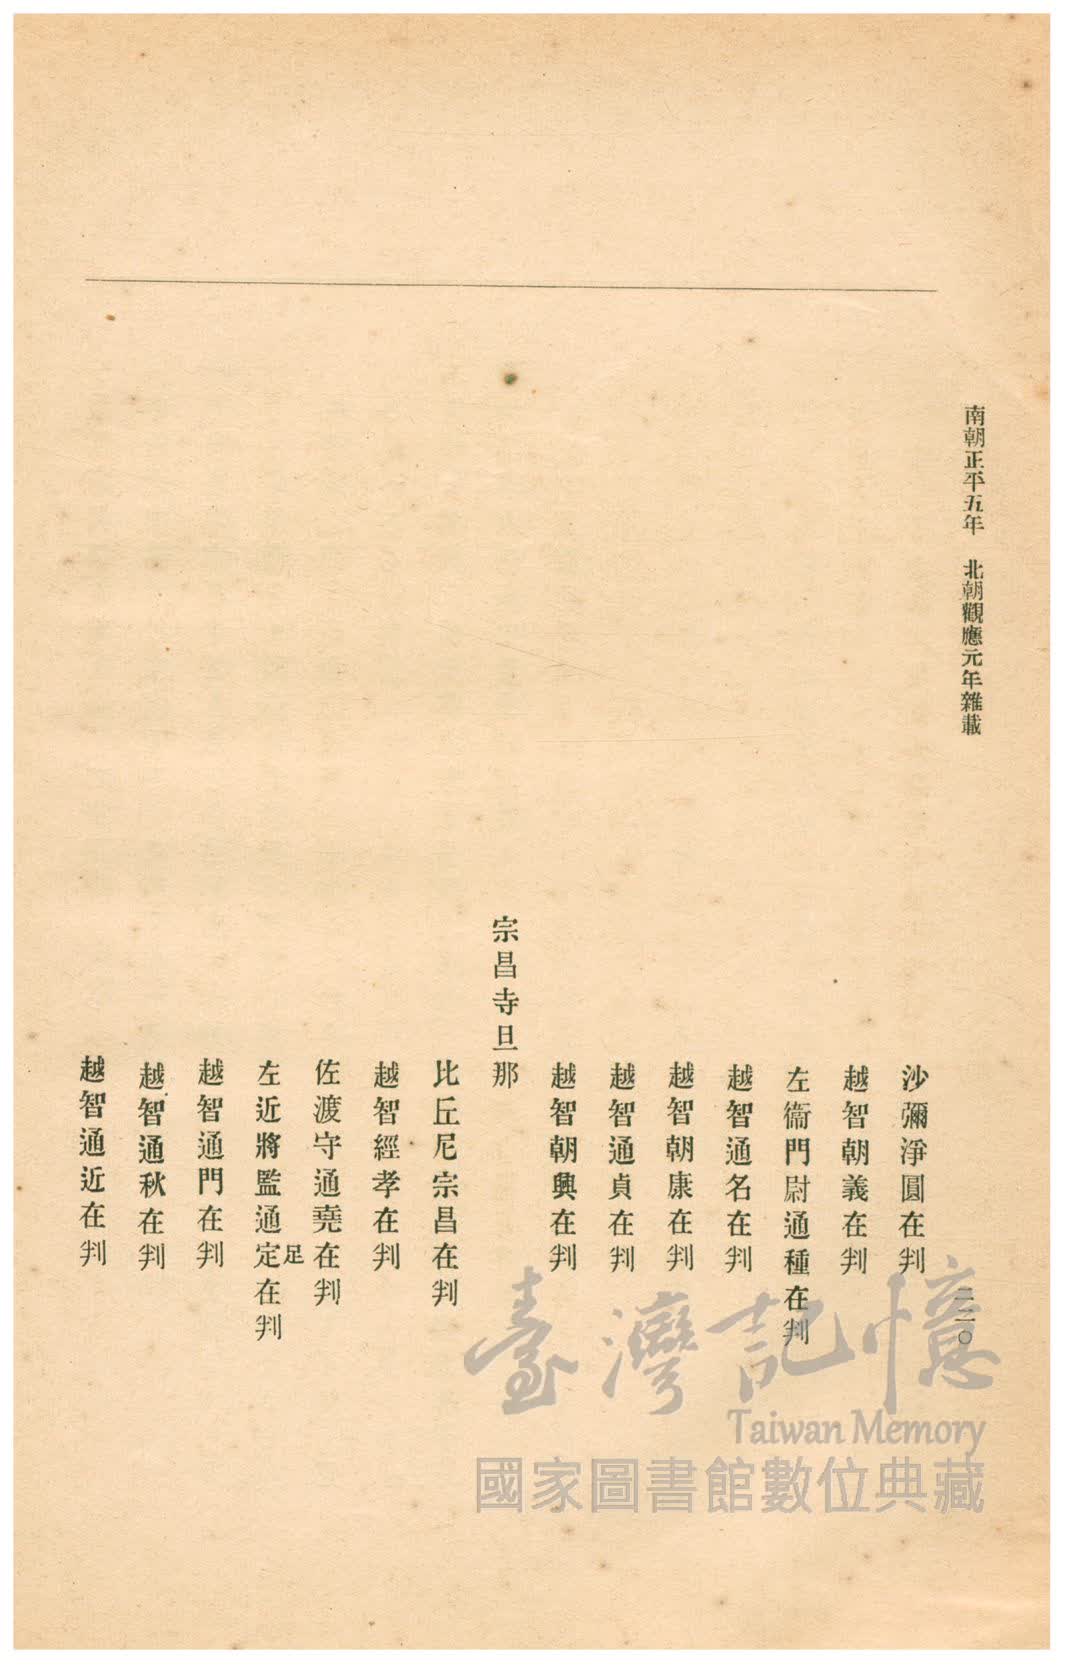 南朝正平五年　北朝觀應元年雜載
二二〇
沙彌淨圓在判
越智朝義在判
左衞門尉通種在判
越智通名在判
越智朝康在判
越智通貞在判
越智朝興在判
宗昌寺旦那
比丘尼宗昌在判
越智經孝在判
佐渡守通堯在判
足
左近將監通定在判
越智通門在判
越智通秋在判
越智通近在判
臺灣記憶
Taiwan Memory
國家圖書館數位典藏